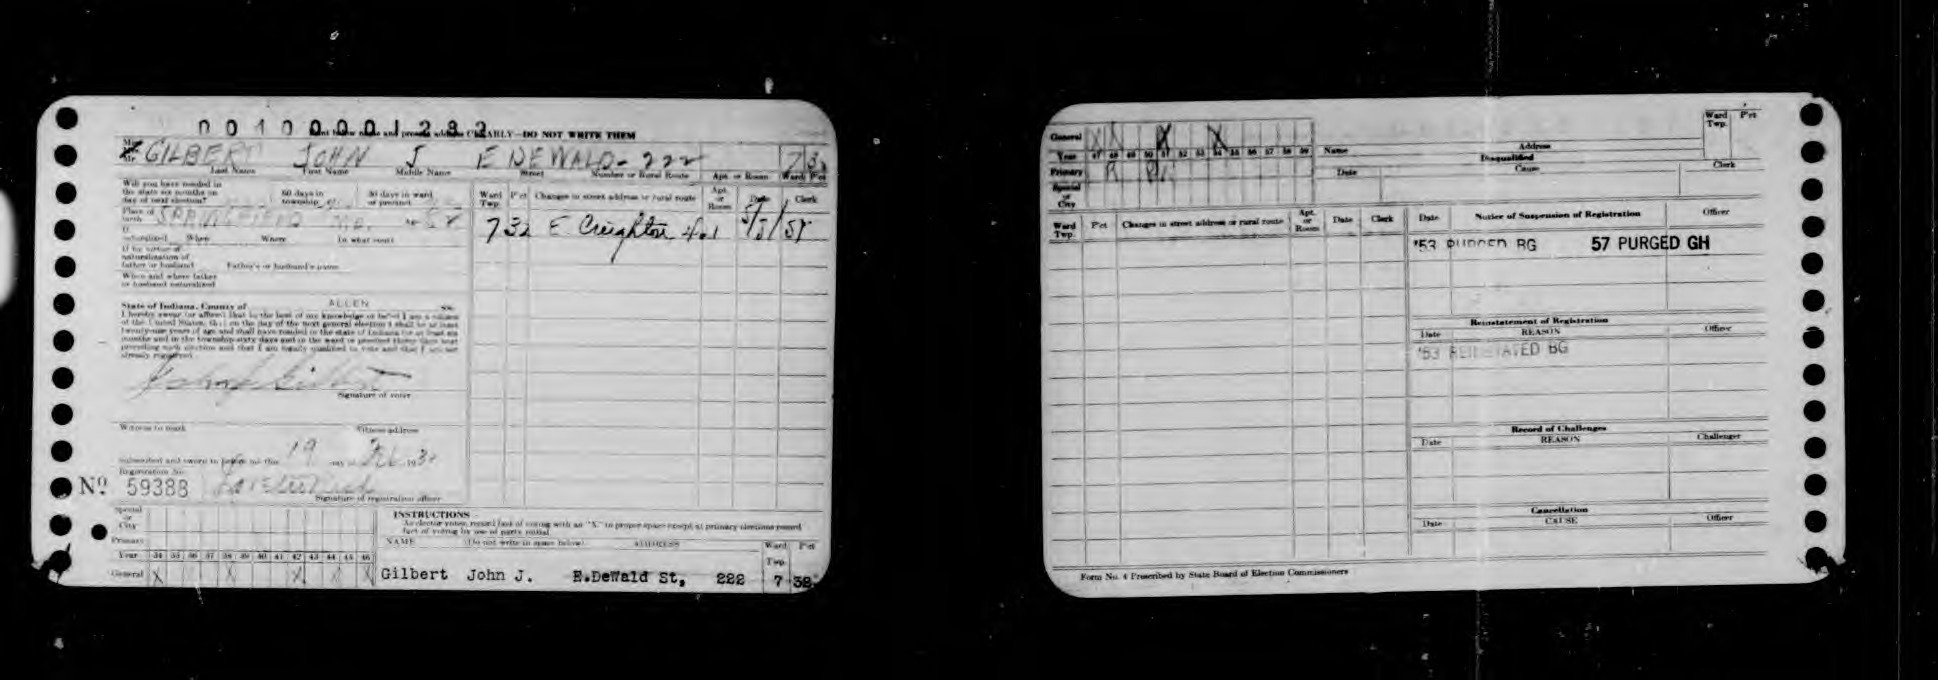 00100001282
Print below name and present address CLEARLY—DO NOT WRITE THEM
GILBERT JOHN J E DEWALD - 222 7 32
Last Name First Name Middle Name Street Number or Rural Route Apt. or Room Ward P'ct
Will you have resided in
the state six months on
day of next election?
60 days in
township
30 days in ward
or precinct
Place of birth SPRINGFIELD
If naturalized When Where In what court
If by virtue of
naturalization of
father or husband Father's or husband's name
When and where father
or husband naturalized
State of Indiana, County of ALLEN ss.
I hereby swear (or affirm) that to the best of my knowledge or belief I am a citizen
of the United States, that on the day of the next general election I shall be at least
twenty-one years of age and shall have resided in the state of Indiana for at least six
months and in the township sixty days and in the ward or precinct thirty days next
preceding such election and that I am legally qualified to vote and that I am not
already registered
John J Gilbert
Signature of voter
Witness to mark Witness address
Subscribed and sworn to before me this 19 day of Feb 193
Registration No.
No 59388
Signature of registration officer
Ward Twp. P'ct Changes in street address or rural route Apt. or Room Date Clerk
7 32 E Creighton 401
Special or City
Primary
Year 34 35 36 37 38 39 40 41 42 43 44 45 46
General X X X X X
INSTRUCTIONS
As elector votes, record fact of voting with an "X" in proper space except at primary elections record
fact of voting by use of party initial
NAME (Do not write in space below) ADDRESS Ward Twp. P'ct
Gilbert John J. E.DeWald St, 222 7 32
General X X X X
Year 47 48 49 50 51 52 53 54 55 56 57 58 59
Primary R R
Special or City
Name Address Ward Twp. P'ct
Disqualified
Date Cause Clerk
Ward Twp. P'ct Changes in street address or rural route Apt. or Room Date Clerk
Date Notice of Suspension of Registration Officer
'53 PURGED BG 57 PURGED GH
Reinstatement of Registration
Date REASON Officer
'53 REINSTATED BG
Record of Challenges
Date REASON Challenger
Cancellation
Date CAUSE Officer
Form No. 4 Prescribed by State Board of Election Commissioners